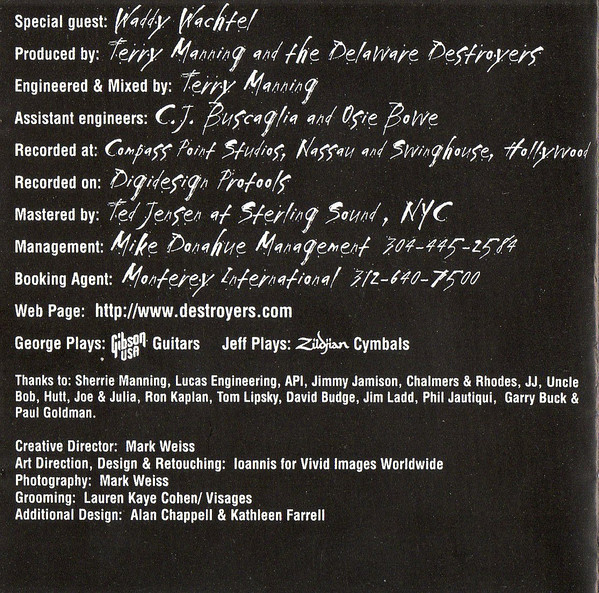 Special guest: Waddy Wachtel
Produced by: Terry Manning and the Delaware Destroyers
Engineered & Mixed by: Terry Manning
Assistant engineers: C.J. Buscaglia and Osie Bowe
Recorded at: Compass Point Studios, Nassau and Swinghouse, Hollywood
Recorded on: Digidesign Protools
Mastered by: Ted Jensen at Sterling Sound, NYC
Management: Mike Donahue Management 304-445-2584
Booking Agent: Monterey International 312-640-7500
Web Page: http://www.destroyers.com
George Plays: Gibson USA Guitars Jeff Plays: Zildjian Cymbals
Thanks to: Sherrie Manning, Lucas Engineering, API, Jimmy Jamison, Chalmers & Rhodes, JJ, Uncle
Bob, Hutt, Joe & Julia, Ron Kaplan, Tom Lipsky, David Budge, Jim Ladd, Phil Jautiqui, Garry Buck &
Paul Goldman.
Creative Director: Mark Weiss
Art Direction, Design & Retouching: Ioannis for Vivid Images Worldwide
Photography: Mark Weiss
Grooming: Lauren Kaye Cohen/ Visages
Additional Design: Alan Chappell & Kathleen Farrell